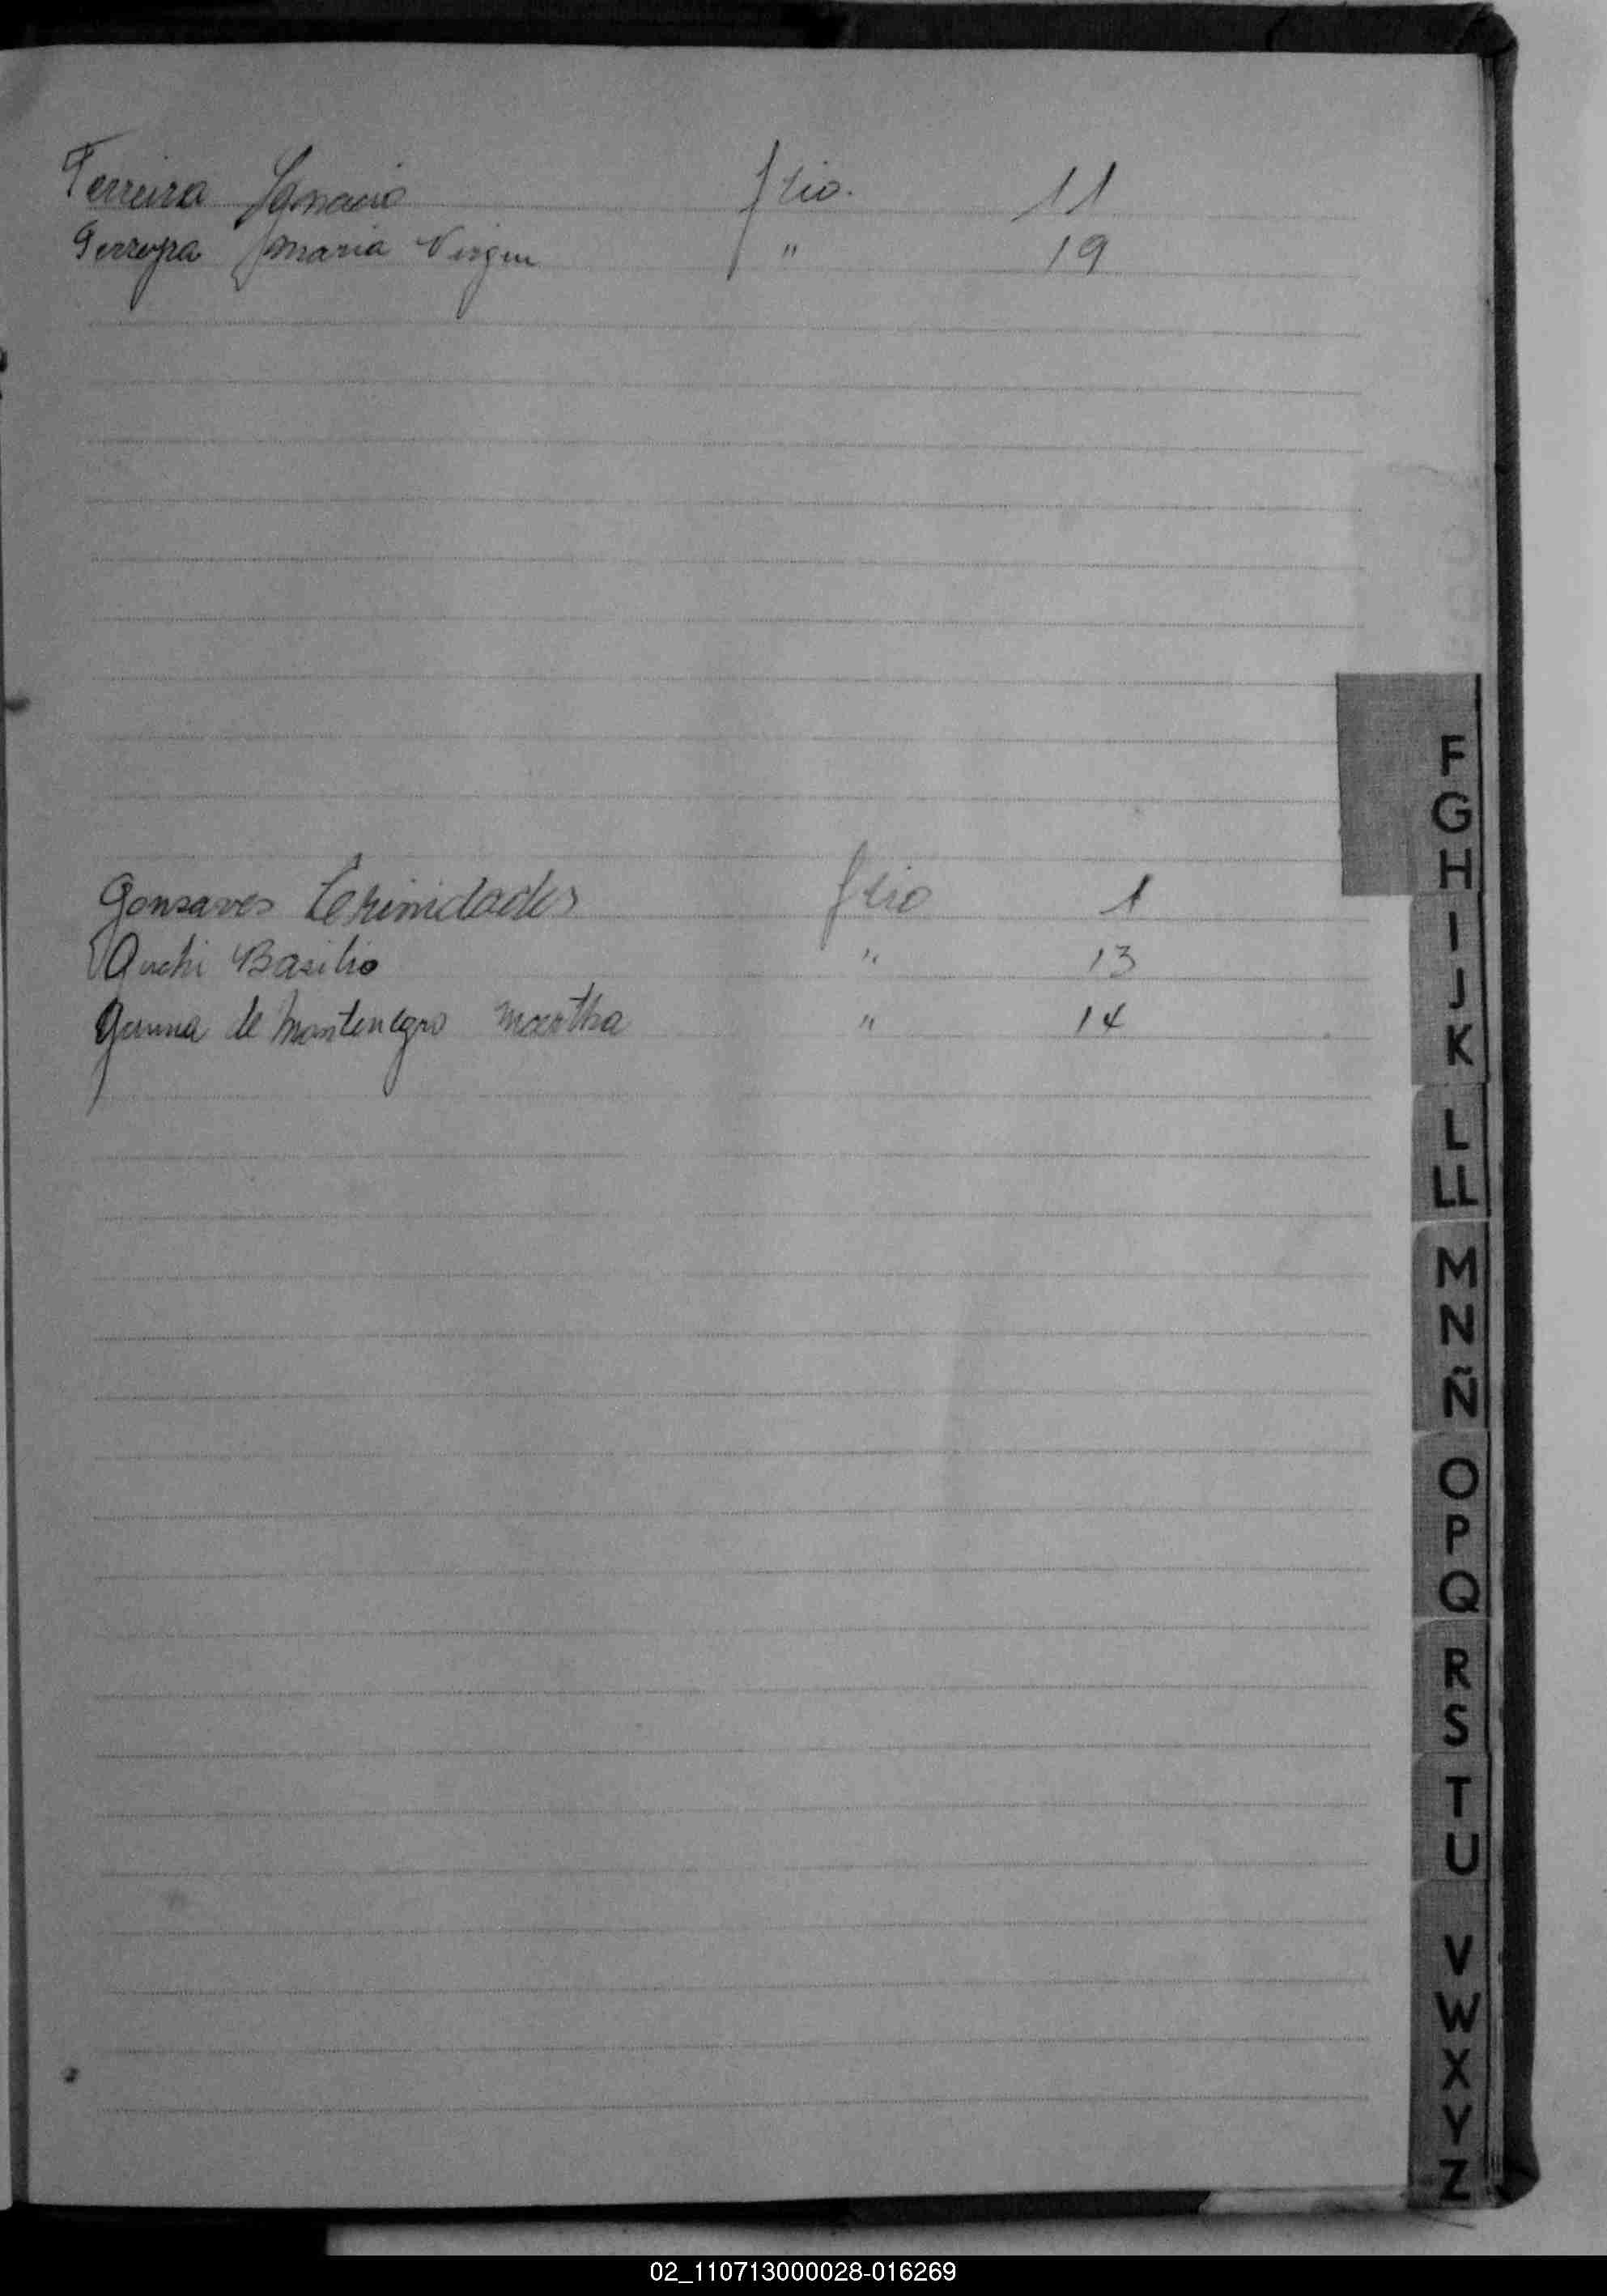 Ferreira Ignacio flio. 11
Ferreyra Maria Virgen " 19
Gonsaves terinidades flio 1
Guchi Basilio " 13
de Montenegro Martha " 14
F
G
H
I
J
K
L
LL
M
N
Ñ
O
P
Q
R
S
T
U
V
W
X
Y
Z
02_110713000028-016269